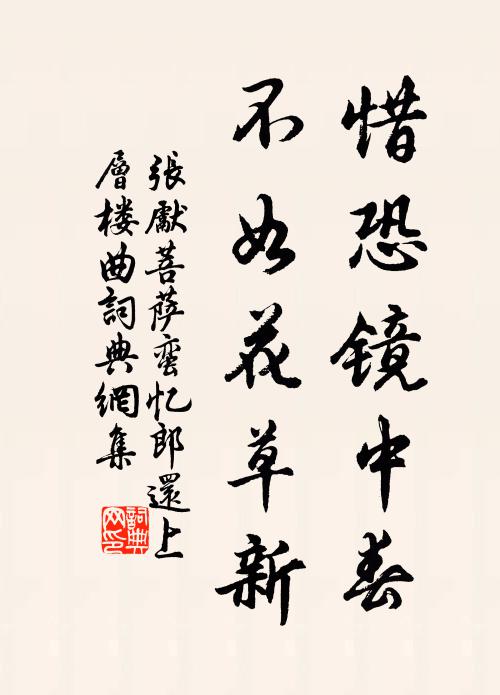 惜恐镜中春
不如花草新
張獻菩萨蛮忆郎還上
層楼曲詞典網集
詞典
网印